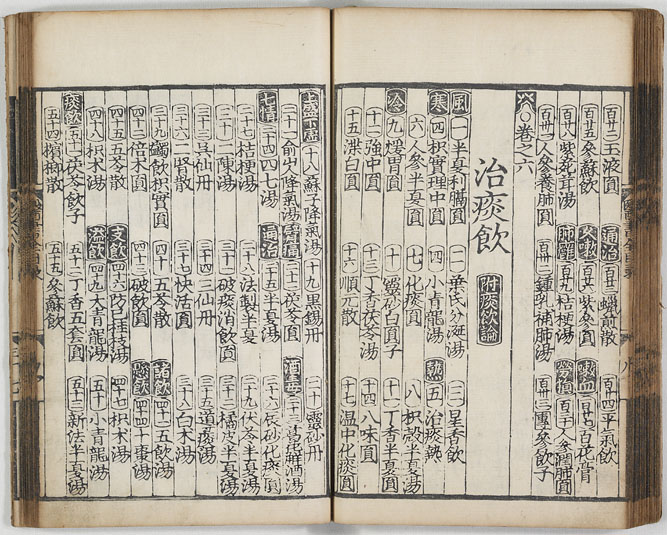 百十二玉液圓　通治　百十三蠟煎散　百十四平氣飲
百十五參蘇飲　久嗽　百十六紫參圓　嗽血　百十七百花膏
百十八紫菀茸湯　肺癰　百十九桔梗湯　百二十人參潤肺圓
百廿一人參養肺圓　百廿二鍾乳補肺湯　百廿三團參飲子
卷之六
治痰飲　附痰飲論
風　一半夏利膈圓　二葉氏分涎湯　三星香飲
寒　四枳實理中圓　四小青龍湯　熱　五治痰熱
六人參半夏圓　七化痰圓　八枳殼半夏湯
冷　九煖胃圓　十靈砂白圓子　十一丁香半夏圓
十二強中圓　十三丁香茯苓湯　十四八味圓
十五洪白圓　十六順元散　十七溫中化痰圓
上盛下虛　十八蘇子降氣湯　十九黑錫丹　二十靈砂丹
二十一俞山降氣湯　二十二茯苓圓　酒毒　二十三葛花解酒湯
七情　二十四四七湯　通治　二十五半夏湯　二十六辰砂化痰圓
二十七桔梗湯　二十八法製半夏　二十九茯苓半夏湯
三十二陳湯　三十一破痰消飲圓　三十二橘皮半夏湯
三十三仙丹　三十四三仙丹　三十五導痰湯
三十六二賢散　三十七快活圓　三十八白木湯
三十九蠲飲枳實圓　四十五苓散　留飲　四十一五飲湯
四十二倍术圓　四十三破飲圓　四十四十棗湯
四十五五苓散　支飲　四十六防己桂枝湯　四十七枳术湯
四十八枳术湯　溢飲　四十九大青龍湯　五十小青龍湯
痰飲　五十一茯苓飲子　五十二丁香五套圓　五十三新法半夏湯
五十四檳榔散　五十五參蘇飲